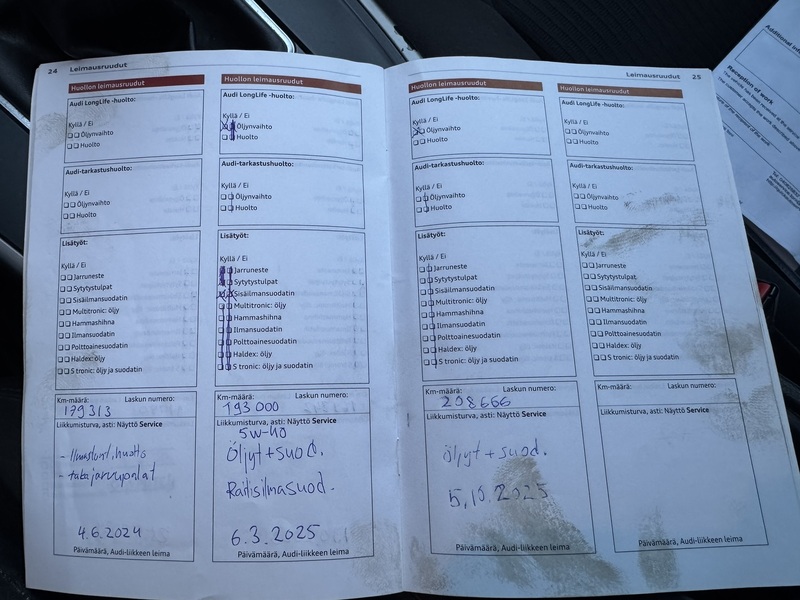 24 Leimausruudut
Huollon leimausruudut
Audi LongLife -huolto:
Kyllä / Ei
Öljynvaihto
Huolto
Audi-tarkastushuolto:
Kyllä / Ei
Öljynvaihto
Huolto
Lisätyöt:
Kyllä / Ei
Jarruneste
Sytytystulpat
Sisäilmansuodatin
Multitronic: öljy
Hammashihna
Ilmansuodatin
Polttoainesuodatin
Haldex: öljy
S tronic: öljy ja suodatin
Km-määrä: Laskun numero:
179313
Liikkumisturva, asti: Näyttö Service
- huolto
- takajarrupalat
4.6.2024
Päivämäärä, Audi-liikkeen leima
Huollon leimausruudut
Audi LongLife -huolto:
Kyllä / Ei
Öljynvaihto
Huolto
Audi-tarkastushuolto:
Kyllä / Ei
Öljynvaihto
Huolto
Lisätyöt:
Kyllä / Ei
Jarruneste
Sytytystulpat
Sisäilmansuodatin
Multitronic: öljy
Hammashihna
Ilmansuodatin
Polttoainesuodatin
Haldex: öljy
S tronic: öljy ja suodatin
Km-määrä: Laskun numero:
193 000
Liikkumisturva, asti: Näyttö Service
5W-40
Öljyt + suod.
Raitisilmasuod.
6.3.2025
Päivämäärä, Audi-liikkeen leima
Leimausruudut 25
Huollon leimausruudut
Audi LongLife -huolto:
Kyllä / Ei
Öljynvaihto
Huolto
Audi-tarkastushuolto:
Kyllä / Ei
Öljynvaihto
Huolto
Lisätyöt:
Kyllä / Ei
Jarruneste
Sytytystulpat
Sisäilmansuodatin
Multitronic: öljy
Hammashihna
Ilmansuodatin
Polttoainesuodatin
Haldex: öljy
S tronic: öljy ja suodatin
Km-määrä: Laskun numero:
208666
Liikkumisturva, asti: Näyttö Service
öljyt + suod.
5.10.2025
Päivämäärä, Audi-liikkeen leima
Huollon leimausruudut
Audi LongLife -huolto:
Kyllä / Ei
Öljynvaihto
Huolto
Audi-tarkastushuolto:
Kyllä / Ei
Öljynvaihto
Huolto
Lisätyöt:
Kyllä / Ei
Jarruneste
Sytytystulpat
Sisäilmansuodatin
Multitronic: öljy
Hammashihna
Ilmansuodatin
Polttoainesuodatin
Haldex: öljy
S tronic: öljy ja suodatin
Km-määrä: Laskun numero:
Liikkumisturva, asti: Näyttö Service
Päivämäärä, Audi-liikkeen leima
Additional
Reception of work